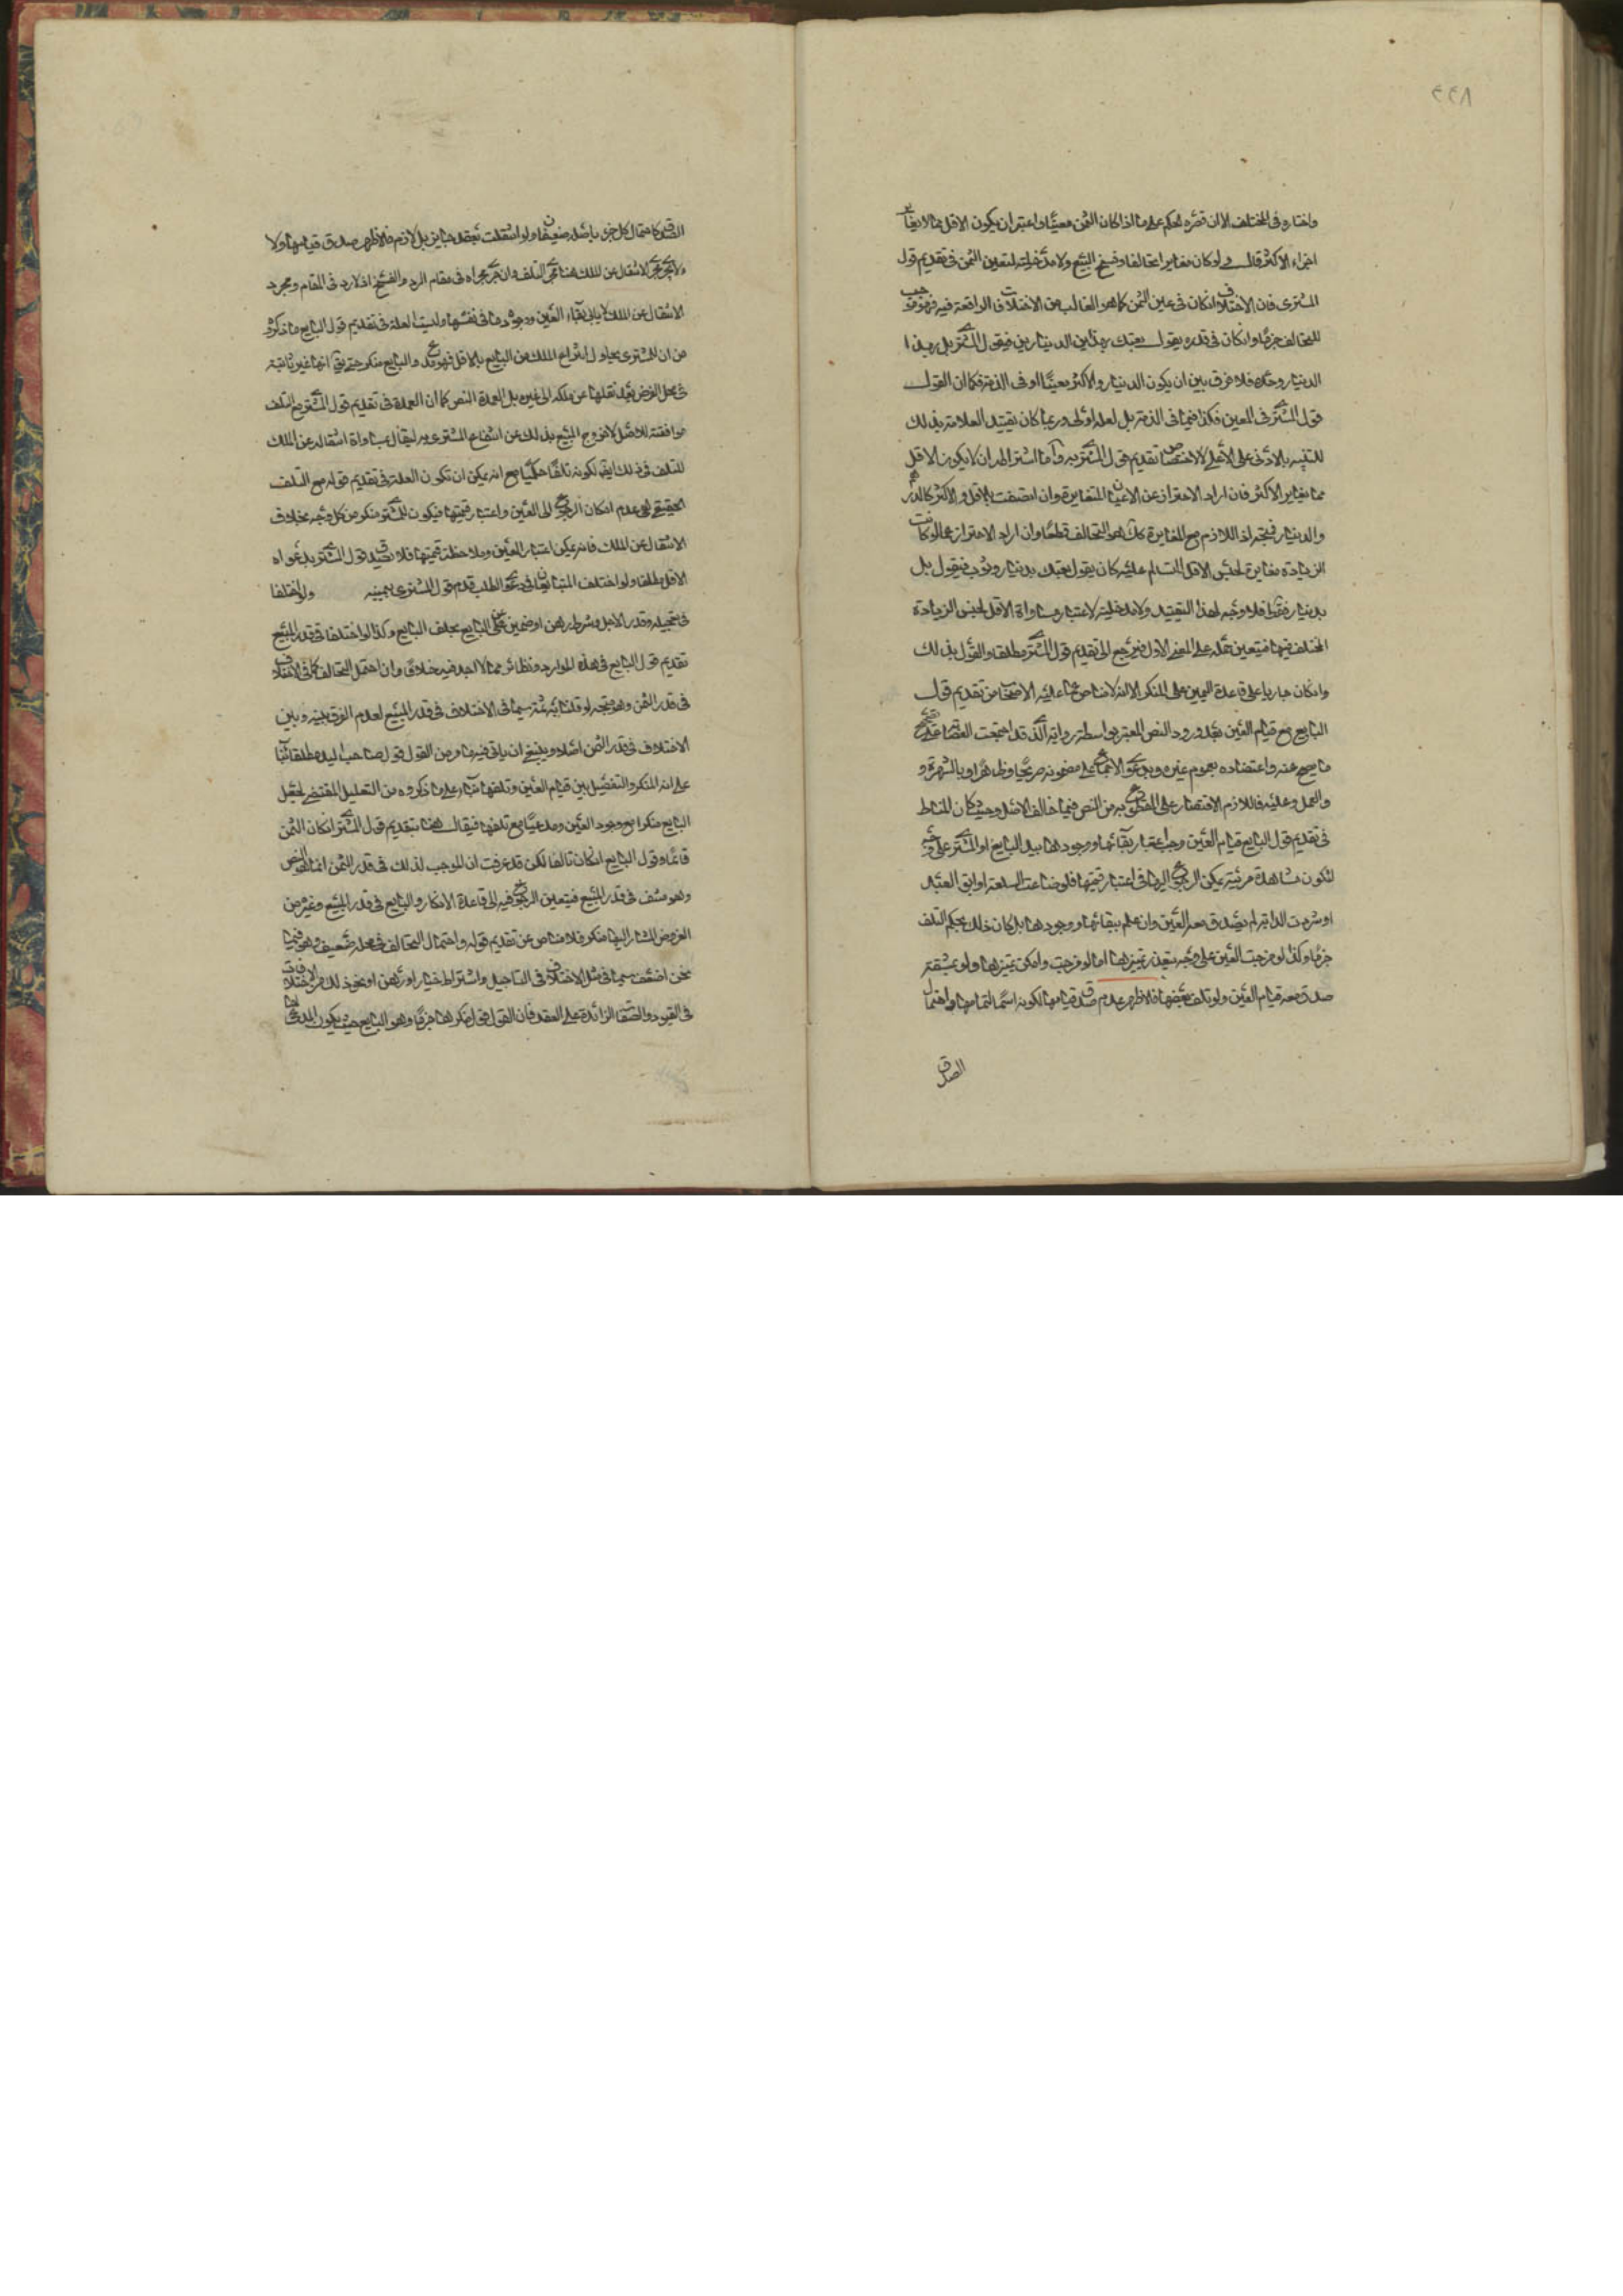 ٤٤٨
واختاره في المختلف الا انه قصره الحكم على ما اذا كان الثمن معينا واعتبر ان يكون الاقل مما لا يغاير
اجزاء الاكثر قال ولو كان مغايرا تحالفا وفسخ البيع ولا مدخلية لتعيين الثمن في تقديم قول
المشتري فان الاختلاف ان كان في عين الثمن كما هو الغالب من الاختلافات الواقعة فيه فهو موجب
للتحالف جزما وان كان في قدره يقول بعتك بهذين الدينارين فيقول المشتري بل بهذا
الدينار وحده فلا فرق بين ان يكون الدينار والاكثر معينا او في الذمة فكما ان القول
قول المشتري في المعين فكذا فيما في الذمة بل لعله اولى وربما كان تقييد العلامة بذلك
للتنبيه بالادنى على الاعلى لا لاختصاص تقديم قول المشتري به واما اشتراطه ان لا يكون الاقل
مما يغاير الاكثر فان اراد الاحتراز عن الاعيان المتغايرة وان اتصفت بالاقل والاكثر كالدرهم
والدينار فمتجه اذ اللازم مع المغايرة كك هو التحالف قطعا وان اراد الاحتراز عما لو كانت
الزيادة مغايرة لجنس الاقل المتسالم عليه كان يقول بعتك بدينار وثوب فيقول بل
بدينار فقط فلا وجه لهذا التقييد ولا مدخلية لاعتبار مساواة الاقل لجنس الزيادة
المختلف فيها فيتعين حمله على المعنى الاول فيرجع الى تقديم قول المشتري مطلقا والقول بذلك
وان كان جاريا على قاعدة اليمين على المنكر الا انه لا مناص عما عليه الاصحاب من تقديم قول
البايع مع قيام العين بعد ورود النص المعتبر بواسطة رواية الذي قد اجمعت العصابة على تصحيح
ما يصح عنه واعتضاده بعموم غيره وبدعوى الاجماع على مضمونه صريحا وظاهرا وبالشهرة و
والعمل وعليه فاللازم الاقتصار على المقطوع به من النص فيما خالف الاصل وحيث كان المناط
في تقديم قول البايع قيام العين وجب اعتبار بقائها ووجودها بيد البايع او المشتري على وجه
لتكون مشاهدة مرئية يمكن الرجوع اليها في اعتبار قيمتها فلو ضاعت السلعة او ابق العبد
او شردت الدابة لم يصدق معه العين وان علم ببقائها ووجودها بل كان ذلك بحكم التلف
جزما وكذا لو مزجت العين على وجه يتعذر تميزها اما لو مزجت وامكن تميزها ولو بمشقة
صدق معه قيام العين ولو تلف بعضها فالاظهر عدم صدق قيامها لكونه اسما لتمامها واحتمال
الصدق
الصدق كاحتمال كل جزء باصله ضعيفان ولو انتقلت بعقد جايز بل لازم فالاظهر صدق قيامها ولا
ولا يجري مجرى الانتقال عن الملك هنا مجرى التلف وان جرى مجراه في مقام الرد والفسخ اذ لا رد في المقام ومجرد
الانتقال عن الملك لا ينافي بقاء العين ووجودها في نفسها وليست العلة في تقديم قول البايع ما ذكروه
من ان المشتري يحاول انتزاع الملك من البايع بالاقل فهو مدع والبايع منكر حتى يق انها غير ثابتة
في محل الفرض بعد نقلها عن ملكه الى غيره بل العمدة النص كما ان العمدة في تقديم قول المشتري مع التلف
موافقته للاصل لا خروج المبيع بذلك عن انتفاع المشتري به ليقال بمساواة انتقاله عن الملك
للتلف في ذلك ايضا لكونه تلفا حكميا مع انه يمكن ان تكون العلة في تقديم قوله مع التلف
الحقيقي هي عدم امكان الرجوع الى العين واعتبار قيمتها فيكون المشتري منكرا من كل وجه بخلاف
الانتقال عن الملك فانه يمكن اعتبار العين وملاحظة قيمتها فلا يصدق قول المشتري بدعواه
الاقل مطلقا ولو اختلف المتبايعان في دعوى الطلب قدم قول المشتري بيمينه ولو اختلفا
في تعجيله وقدر الاجل وشرط رهن او ضمين عن البايع يحلف البايع وكذا لو اختلفا في قدر المبيع
تقديم قول البايع في هذه الموارد ونظائره مما لا اجد فيه خلافا وان احتمل التحالف كما في الاختلاف
في قدر الثمن وهو متجه لو قلنا به ثمة سيما في الاختلاف في قدر المبيع لعدم الفرق بينه وبين
الاختلاف في قدر الثمن اصلا وينبغي ان ياتي فيه ما مر من القول قول صاحب اليد مطلقا بناء
على انه المنكر والتفصيل بين قيام العين وتلفها بناء على ما ذكروه من التعليل المقتضي لجعل
البايع منكرا مع وجود العين ومدعيا مع تلفها فيقال هنا بتقديم قول المشتري ان كان الثمن
قائما وقول البايع ان كان تالفا لكن قد عرفت ان الموجب لذلك في قدر الثمن انما هو النص
وهو منتف في قدر المبيع فيتعين الرجوع فيه الى قاعدة الانكار والبايع في قدر المبيع وغيره من
الفروض المشار اليها منكر فلا مناص عن تقديم قوله واحتمال التحالف في محله ضعيف وهو فيما
نحن اضعف سيما في مثل الاختلاف في التاجيل واشتراط خيار او رهن او نحو ذلك من الاختلافات
في القيود والصفات الزائدة على العقد فان القول قول منكرها جزما وهو البايع حيث يكون المدعي لها